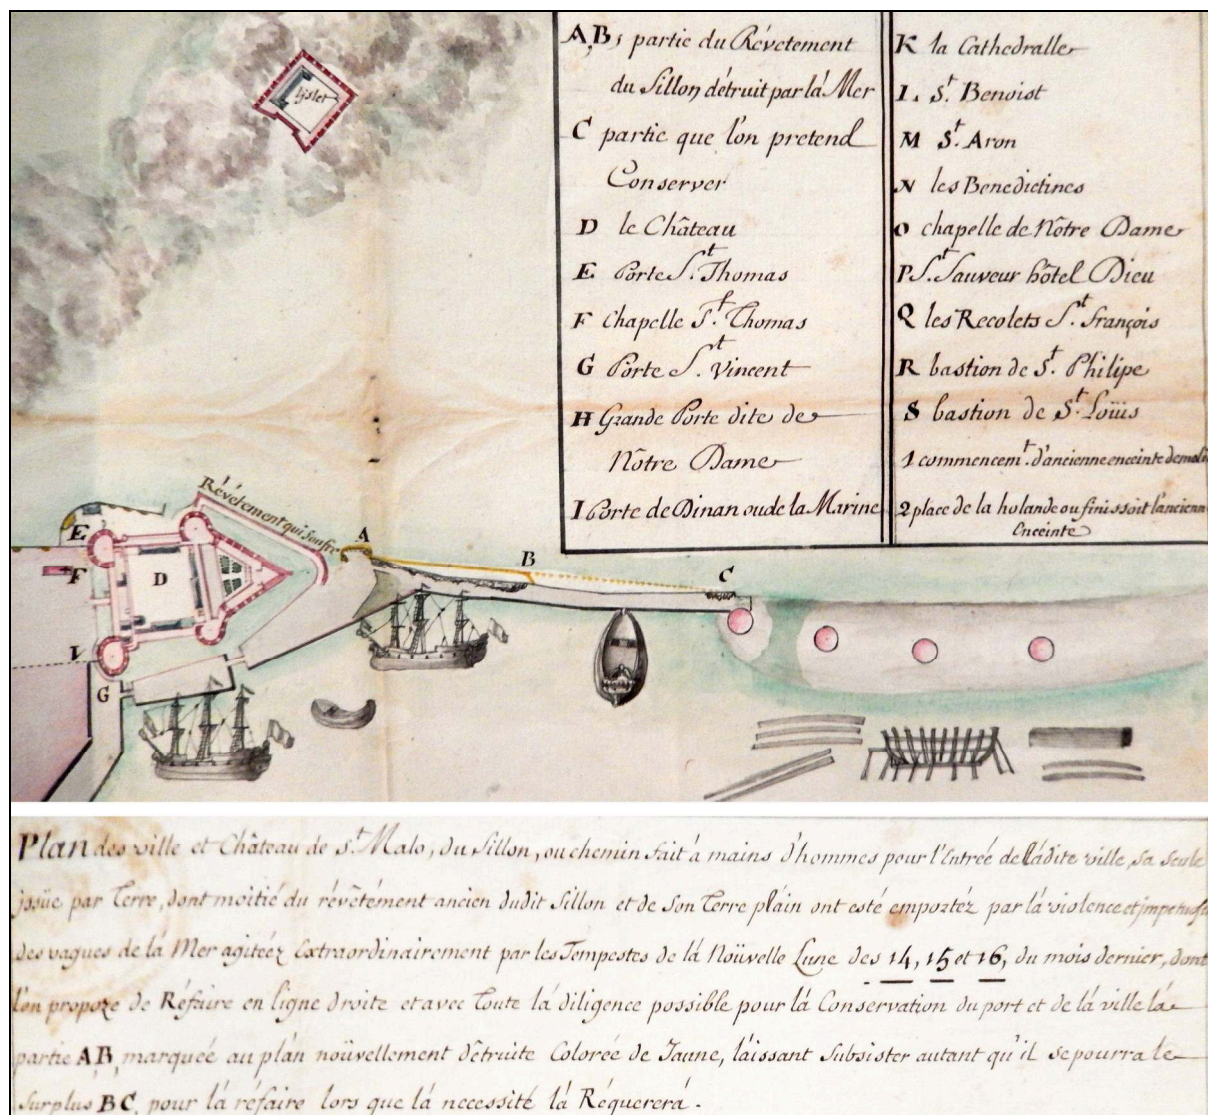 A,B; partie du Révetement
du Sillon détruit par là Mer
C partie que l'on pretend
Conserver
D le Château
E Porte S.t Thomas
F Chapelle S.t Thomas
G Porte S.t Vincent
H Grande Porte dite de
Nôtre Dame
I Porte de Dinan ou de la Marine
K la Cathedralle
L. S.t Benoist
M S.t Aron
N les Benedictines
O chapelle de Nôtre Dame
P S.t Sauveur hôtel Dieu
Q les Recolets S.t françois
R bastion de S.t Philipe
S bastion de S.t Loüis
1 commencem.t d'ancienne enceinte
2 place de la holande ou finissoit l'ancienn
Enceinte
Ijslet
Révétement qui souffre
A
B
C
E
F
D
V
G
Plan des ville et Château de S.t Malo, du Sillon, ou chemin fait à mains d'hommes pour l'Entrée de ladite ville, sa seule
jssüe par Terre, dont moitié du révêtement ancien dudit Sillon et de son Terre plain ont esté emportéz par là violence et
des vagues de là Mer agitéez Extraordinairement par les Tempestes de là Noüvelle Lune des 14, 15 et 16, du mois dernier, dont
l'on propoze de Réfaire en ligne droite et avec Toute là diligence possible pour là Conservation du port et de là ville là
partie AB, marqueé au plán noüvellement détruite Colorée de Jaune, làissant Subsister autant qu'il se pourra le
surplus BC, pour là réfaire lors que là necessité là Réquerera.